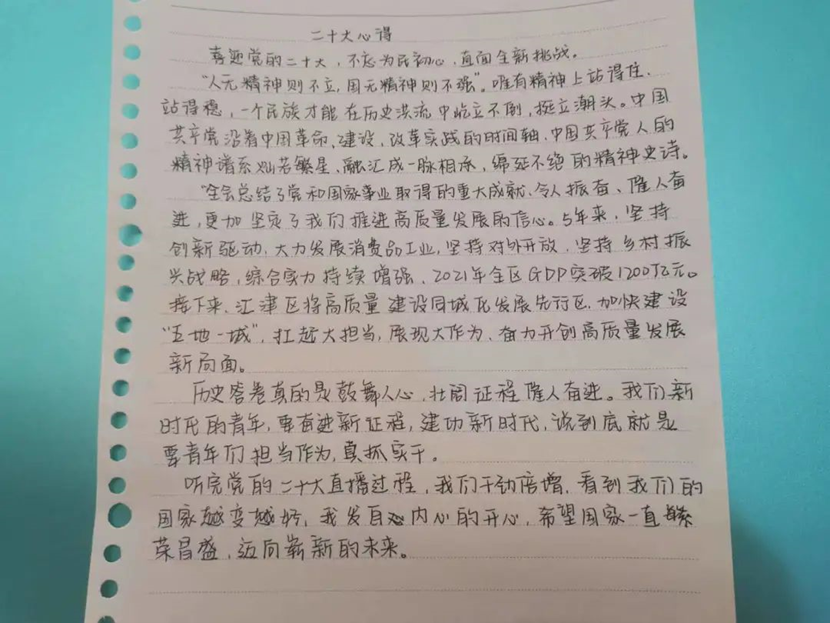 二十大心得
喜迎党的二十大，不忘为民初心，直面全新挑战。
"人无精神则不立，国无精神则不强"。唯有精神上站得住、
站得稳，一个民族才能在历史洪流中屹立不倒，挺立潮头。中国
共产党沿着中国革命、建设、改革实践的时间轴，中国共产党人的
精神谱系灿若繁星、融汇成一脉相承，绵延不绝的精神史诗。
"全会总结了党和国家事业取得的重大成就、令人振奋、催人奋
进，更加坚定了我们推进高质量发展的信心。5年来，坚持
创新驱动，大力发展消费品工业，坚持对外开放，坚持乡村振
兴战略，综合实力持续增强，2021年全区GDP突破1200亿元。
接下来，江津区将高质量建设同城化发展先行区，加快建设
"五地一城"，扛起大担当，展现大作为，奋力开创高质量发展
新局面。
历史答卷真的是鼓舞人心，壮阔征程催人奋进。我们新
时代的青年，要奋进新征程，建功新时代，说到底就是
要青年们担当作为，真抓实干。
听完党的二十大直播过程，我们干劲倍增，看到我们的
国家越变越好，我发自内心的开心，希望国家一直繁
荣昌盛，迈向崭新的未来。